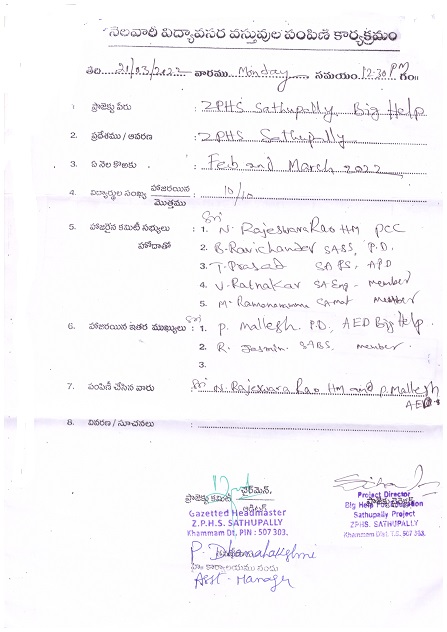 నెలవారీ విద్యావసర వస్తువుల పంపిణీ కార్యక్రమం
తేది 21/03/2022 వారము Monday సమయం 12-30 PM గం॥
1. ప్రాజెక్టు పేరు : ZPHS Sathupally, Big Help
2. ప్రదేశము / ఆవరణ : ZPHS Sathupally
3. ఏ నెల కొఱకు : Feb and March 2022
4. విద్యార్థుల సంఖ్య హాజరయిన / మొత్తము : 10/10
5. హాజరైన కమిటీ సభ్యులు హోదాతో : Sri 1. N. Rajeswara Rao HM PCC
2. B. Ravichander SABS, P.D.
3. T. Prasad SAPS, APD
4. V. Ratnakar SA Eng - Member
5. M. Ramanamma SA Mat Member
6. హాజరయిన ఇతర ముఖ్యులు : Sri 1. P. Mallesh P.D., AED Big Help.
2. R. Jasmin. SABS, member.
3.
7. పంపిణీ చేసిన వారు : Sri N. Rajeswara Rao HM and P. Mallesh
AED
8. వివరణ / సూచనలు :
ప్రాజెక్టు కమిటీ ఛైర్మెన్,
Gazetted Headmaster
Z.P.H.S. SATHUPALLY
Khammam Dt, PIN : 507 303.
P. Dhanalakshmi
Asst. Manager
Project Director
Big Help Foundation
Sathupally Project
ZPHS. SATHUPALLY
Khammam Dist. T.S. 507 303.